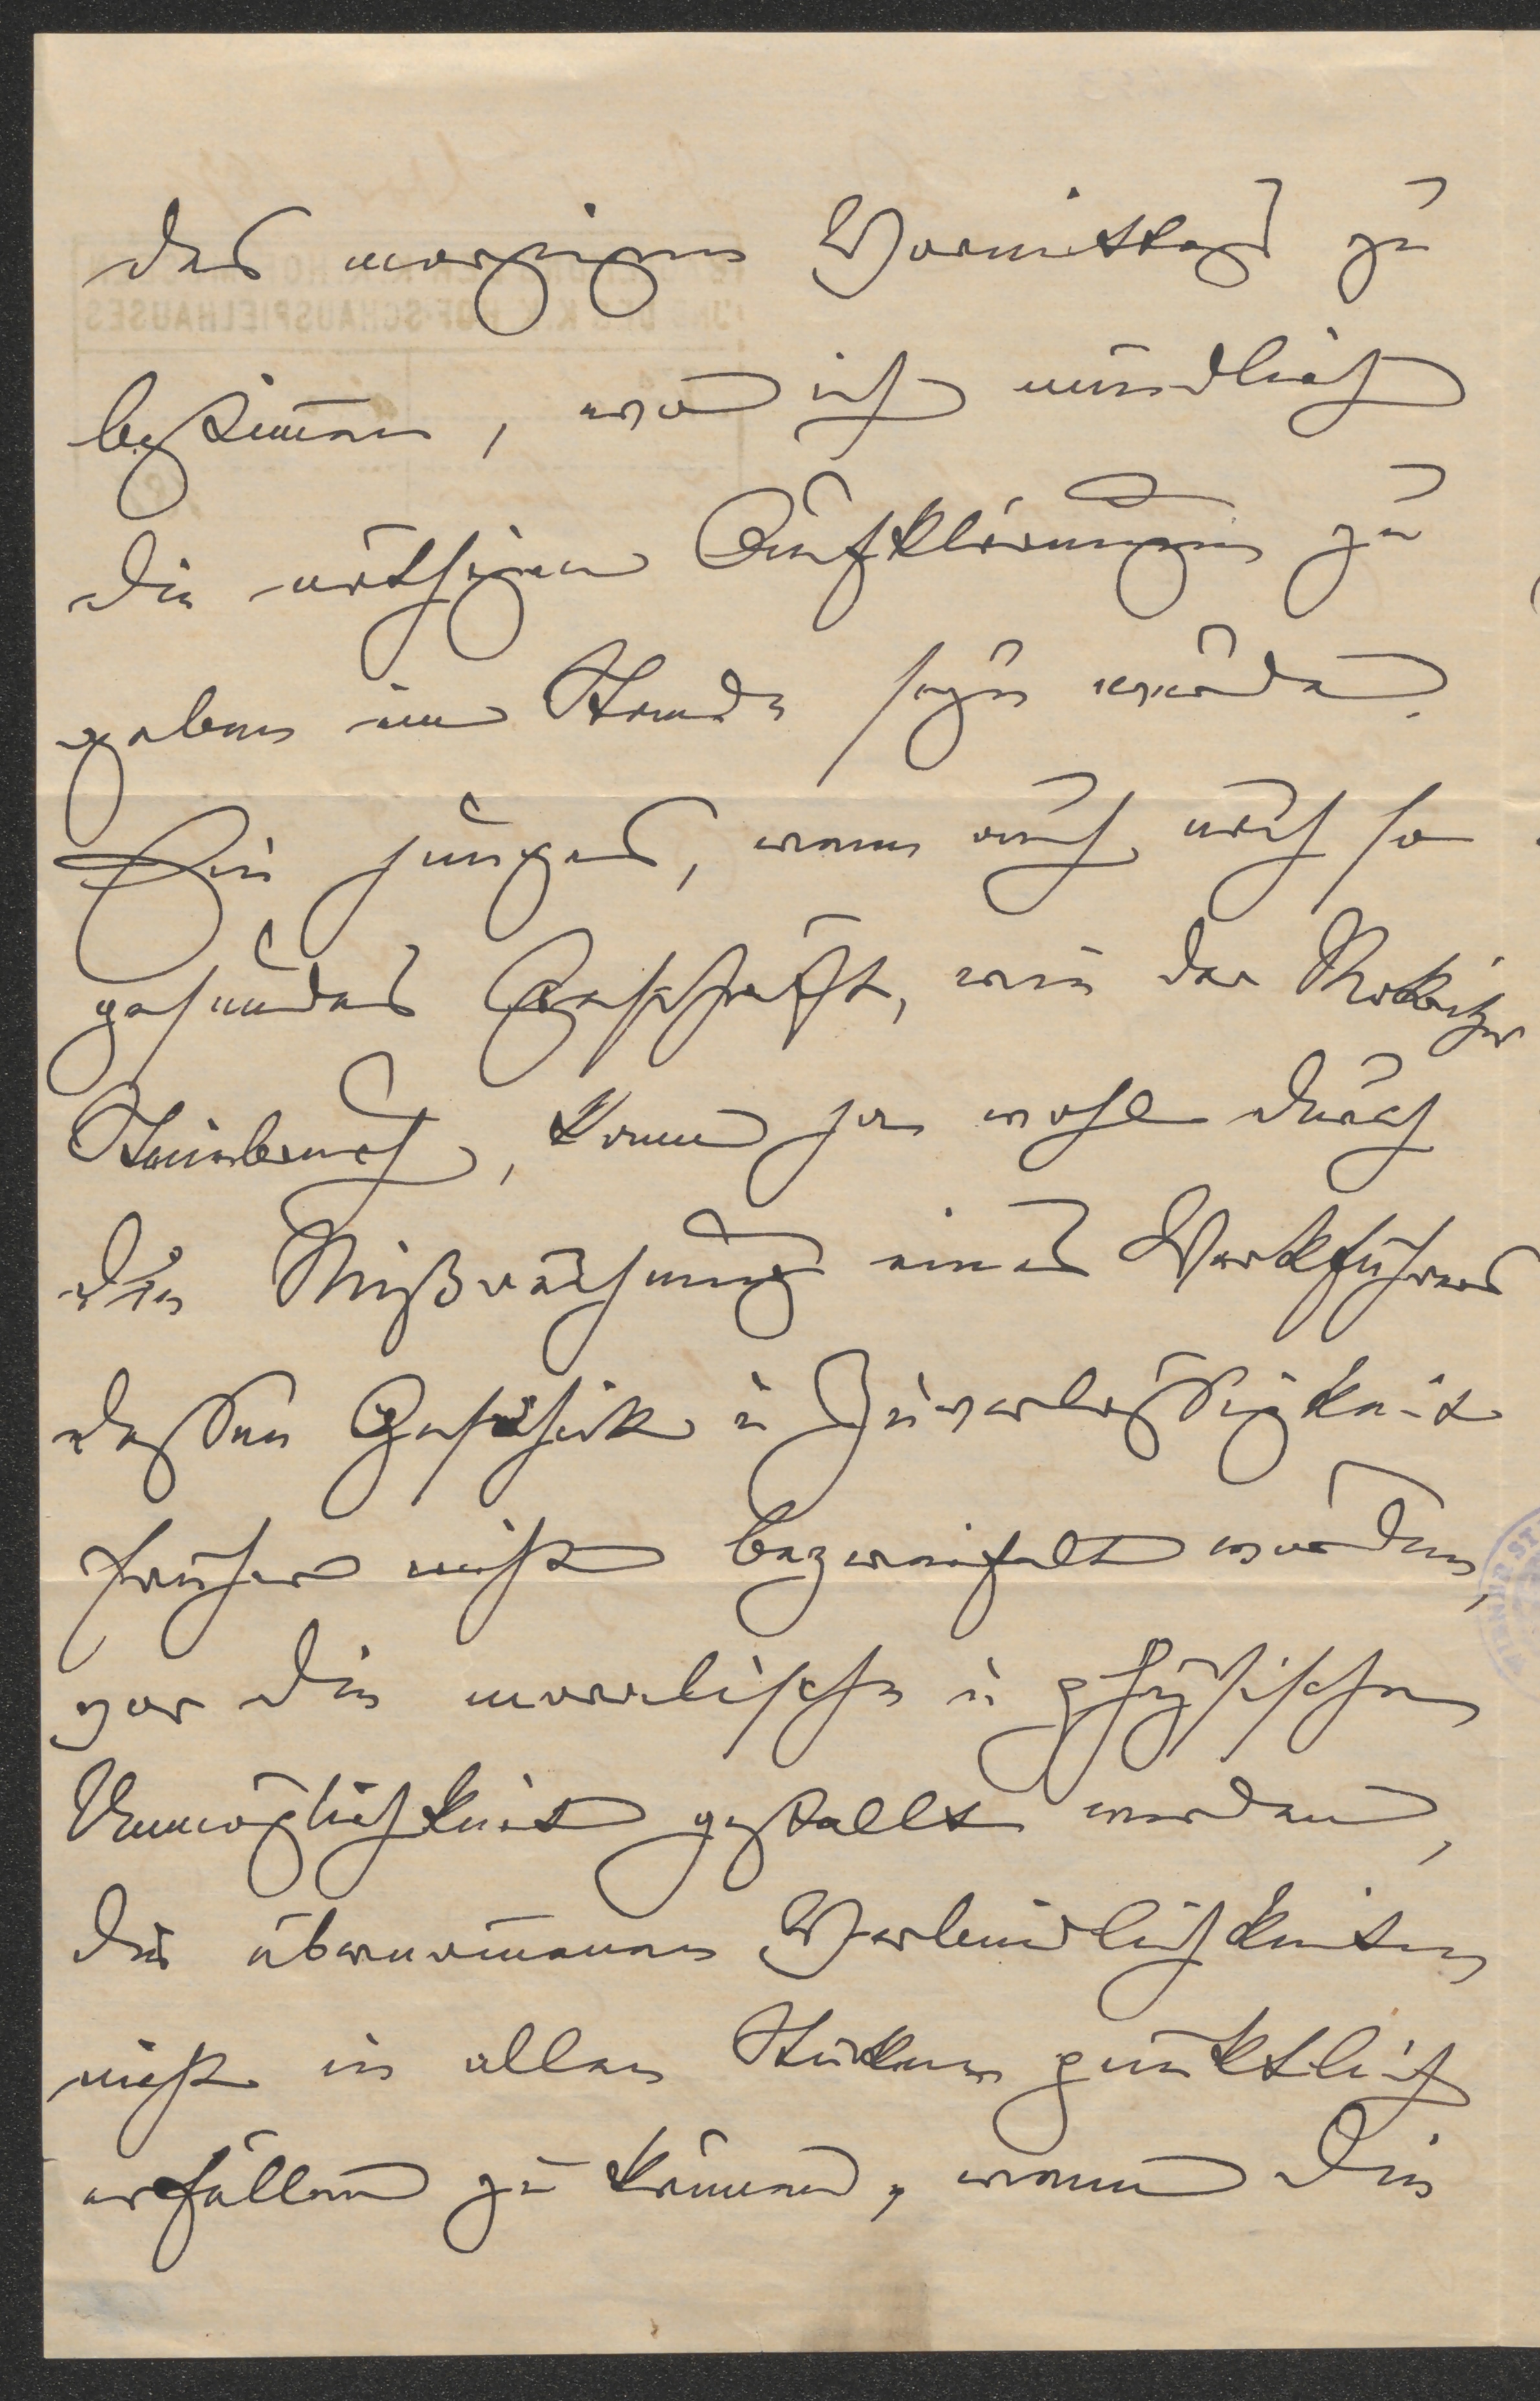 des morgigen Vormittags zu
bestim̄en, wo ich mündlich
die nöthigen Aufklärungen zu
geben im Stande seyn würde.
Ein junges, wenn auch noch so
gesundes Geschäft, wie der
Steinbruch, kann ja wohl durch
die eines Werkführers
dessen Geschick u Zuverlässigkeit
früher nicht bezweifelt worden,
vor die moralische u physische
Unmöglichkeit gestellt werden,
die übernom̄enen Verbindlichkeiten
nicht in allen Stücken pünktlich
erfüllen zu können, wenn die